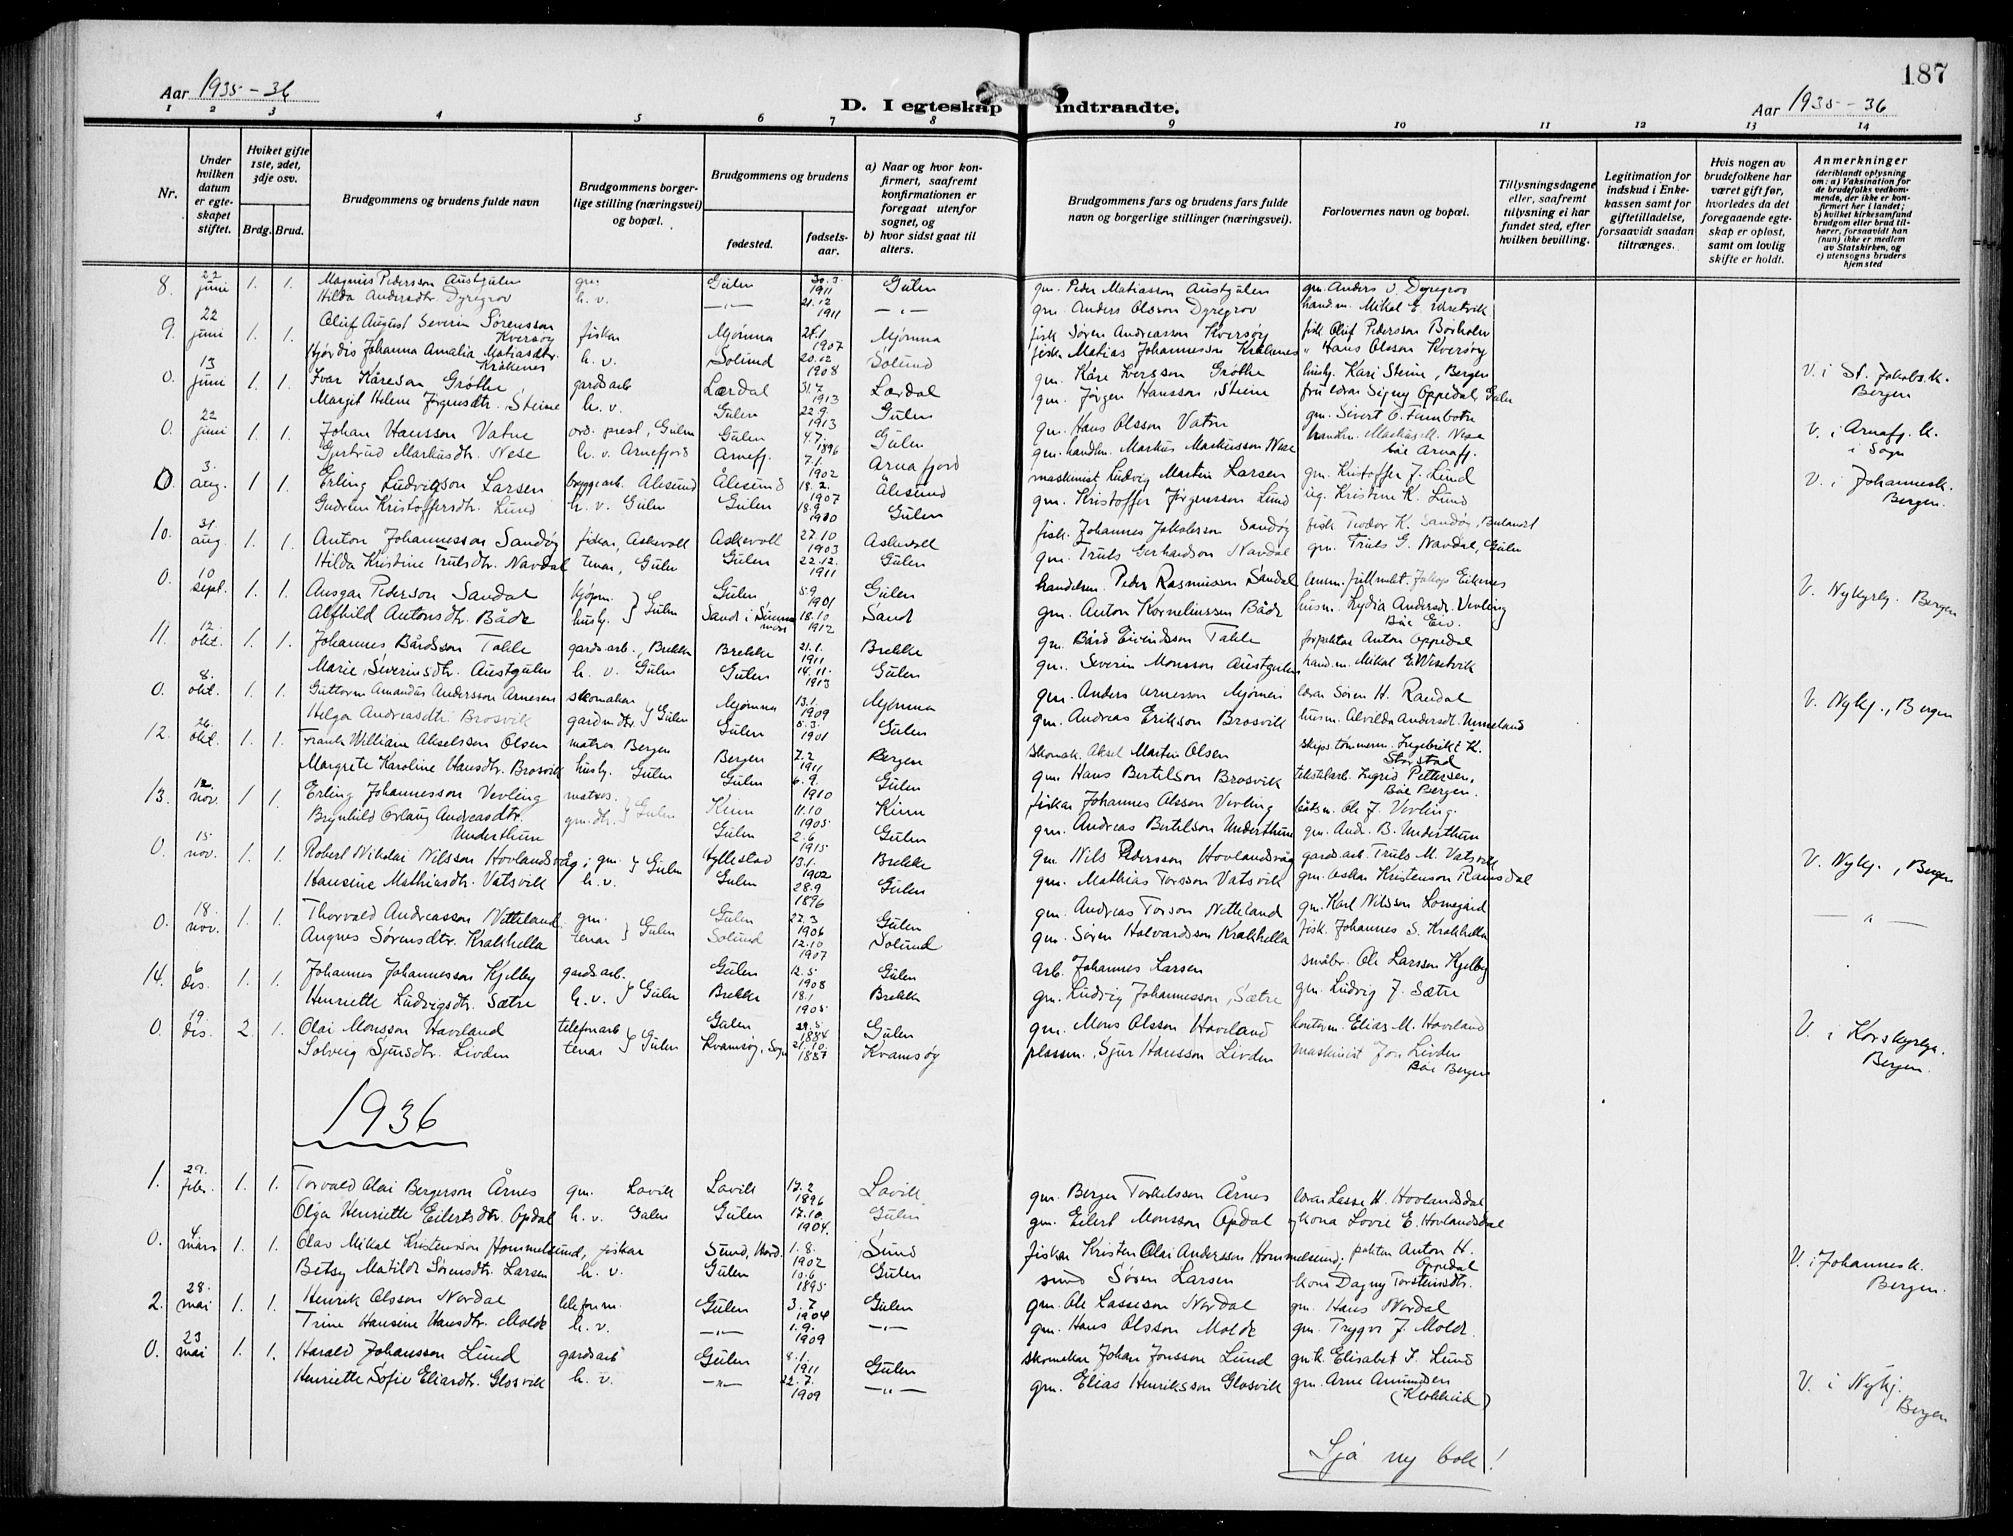 187
Aar 1935-36
D. I egteskap indtraadte.
Aar 1935-36
1 2 3 4 5 6 7 8 9 10 11 12 13 14
Nr.
Under hvilken datum er egteskapet stiftet.
Hviket gifte 1ste, 2det, 3dje osv.
Brdg. Brud.
Brudgommens og brudens fulde navn
Brudgommens borgerlige stilling (næringsvei) og bopæl.
Brudgommens og brudens
fødested.
fødselsaar.
a) Naar og hvor konfirmert, saafremt konfirmationen er foregaat utenfor sognet, og
b) hvor sidst gaat til alters.
Brudgommens fars og brudens fars fulde navn og borgerlige stillinger (næringsvei).
Forlovernes navn og bopæl.
Tillysningsdagene eller, saafremt tillysning ei har fundet sted, efter hvilken bevilling.
Legitimation for indskud i Enkekassen samt for giftetilladelse, forsaavidt saadan tiltrænges.
Hvis nogen av brudefolkene har været gift før, hvorledes da det foregaaende egteskap er opløst, samt om lovlig skifte er holdt.
Anmerkninger (deriblandt oplysning om: a) Vaksination for de brudefolks vedkommende, der ikke er konfirmert her i landet; b) hvilket kirkesamfund brudgom eller brud tilhører, forsaavidt han (hun) ikke er medlem av Statskirken, og c) utensogns bruders hjemsted
8. 22 juni 1. 1. Magnus Pedersson Austgulen gm. Gulen 30.3. 1911 Gulen gm. Peder Matiasson Austgulen gm. Anders O. Dyregrov
Hilda Andersdtr. Dyregrov h.v. —"— 21.12 1911 —"— gm. Anders Olsson Dyregrov handm. Mikal E. Wisetvik
9. 22 juni 1. 1. Oluf August Severin Sørensson Kversøy fiskar Mjømna 21.1. 1907 Mjømna fisk. Søren Andreasson Kversøy fisk. Oluf Pedersson Borholm
Hjørdis Johanna Amalia Matiasdtr. Kråkenes h.v. Solund 20.12 1908 Solund fisk. Matias Johannesson Kråkenes " Hans Olsson Kversøy
0. 13 juni 1. 1. Ivar Kåreson Grøthe gardsarb Lærdal 31.7. 1913 Lærdal gm. Kåre Iversson Grøthe hush. Kari Steine, Bergen V. i St. Jakobs k. Bergen
Margit Helene Jørgensdtr. Steine h.v. Gulen 22.9. 1913 Gulen gm. Jørgen Hansson Steine fru lærar Signy Oppedal Gulen
0. 22 juni 1. 1. Johan Hansson Vatne ord. prest, Gulen Gulen 4.7. 1896 Gulen gm. Hans Olsson Vatne gm. Sivert O. V. i Arnafj. k. i Sogn
Gjertrud Markusdtr. Nese h.v. Arnefjord Arnefj. 7.1. 1902 Arnafjord gm. handlm. Markus Markusson Nese handlm. Markus M. Nese båe Arnafj.
0. 3. aug. 1 1. Erling Ludvigson Larsen bryggearb. Ålesund Ålesund 18.2. 1907 Ålesund maskinist Ludvig Martin Larsen gm. Kristoffer J. Lund V. i Johannesk. Bergen.
Gudrun Kristoffersdtr. Lund h.v. Gulen Gulen 18.9 1900 Gulen gm. Kristoffer Jørgensson Lund ug. Kristine K. Lund
10. 31 aug. 1. 1. Anton Johannesson Sandøy fiskar, Askevoll Askevoll 27.10 1903 Askevoll fisk. Johannes Jakobson Sandøy fisk. Teodor K. Sandøy, Bulandet
Hilda Kristine Trulsdtr. Navdal tenar, Gulen Gulen 22.12. 1911 Gulen gm. Truls Gerhardson Navdal gm. Truls G. Navdal, Gulen
0. 10 sept. 1. 1. Ansgar Pederson Sandal kjøpm. } Gulen Gulen 5.9 1901 Gulen handelsm. Peder Rasmusson Sandal fullmekt. Jakop Eikenes V. Nykyrkj. Bergen
Alfhild Antonsdtr. Både hush. Sand i 18.10 1912 Sand gm. Anton Kornelinssen Både husm. Lydia Andersdr. Verling Båe Eiv.
11. 12. okt. 1. 1. Johannes Bårdsson Takle gardsarb., Brekke Brekke 21.1. 1911 Brekke gm. Bård Eivindsson Takle forpaktar Anton Oppedal
Marie Severinsdtr. Austgulen h.v. Gulen Gulen 14.11. 1913 Gulen gm. Severin Monsson Austgulen handm. Mikal E Wisetvik
0. 8. okt. 1. 1. Guttorm Amandus Andersson Arnesen skomakar } Gulen Mjømna 13.1. 1909 Mjømna gm. Anders Arnesson Mjømen lærar Søren H. Randal V. Nykj., Bergen
Helga Andreasdtr. Brosvik gardmdtr. Gulen 5.3. 1901 Gulen gm. Andreas Erikson Brosvik husm. Alvilde Andersdtr.
12. 26 okt. 1. 1. Frank William Akselsson Olsen matros Bergen Bergen 7.2 1911 Bergen skomak. Aksel Martin Olsen skips tømmerm. Ingebrikt K. Storstad
Margrete Karoline Hansdtr. Brosvik hush. Gulen Gulen 6.9. 1910 Gulen gm. Hans Bertilson Brosvik tekstilarb. Ingrid Pettersen. Båe Bergen.
13. 12. nov. 1. 1. Erling Johannesson Verling matros. } Gulen Kinn 11.10 1905 Kinn fiskar Johannes Olsson Verling båtsm. Ole J. Verling.
Brynhild Orlaug Andreasdtr. Underthun gm.dtr. Gulen 2.6 1915 Gulen gm. Andreas Bertilson Underthun gm. Andr. B. Underthun
0. 15 nov. 1. 1. Robert Nikolai Nilsson Hovlandsvåg gm. } Gulen Hyllestad 13.1. 1902 Brekke gm. Nils Pedersson Hovlandsvåg gardsarb. Truls M. Vatsvik V. Nykj., Bergen
Hansine Mathiasdtr. Vatsvik h.v. Gulen 28.9 1896 Gulen gm. Mathias Torsson Vatsvik gm. Oskar Kristenson Ramsdal
0. 18. nov. 1. 1. Thorvald Andreasson Nitteland gm. } Gulen Gulen 27.3 1906 Gulen gm. Andreas Torson Nitteland gm. Karl Nilsson Lonegård —"—
Angnes Sørensdtr. Krakhella tenar Solund 12.10 1907 Solund gm. Søren Halvardsson Krakhella fisk. Johannes S. Krakhella
14. 6 des. 1. 1. Johannes Johannesson Kjelby gardsarb. } Gulen Gulen 12.5 1908 Gulen arb. Johannes Larsen småbr. Ole Larsson Kjelby
Henriette Ludvigsdtr. Sætre h.v. Brekke 18.1 1905 Brekke gm. Ludvig Johannesson Sætre gm. Ludvig J. Sætre
0. 19. des. 2. 1. Olai Monsson Haveland telefonarb } Gulen Gulen 29.5. 1884 Gulen gm. Mons Olsson Haveland kontorm. Elias M. Haveland V. i Korskyrkja. Bergen.
Solveig Sjursdtr. Livden tenar Kvamsøy, Sogn 21.10. 1887 Kvamsøy plassm. Sjur Hansson Livden maskinist Jon Livden Båe Bergen
1936
1. 29. febr. 1. 1. Torvald Olai Bergerson Årnes gm. Lavik Lavik 17.2 1896 Lavik gm. Berger Torkelsson Årnes lærar Lasse H. Hovlandsdal
Olga Henriette Eilertsdtr. Opdal h.v. Gulen Gulen 17.10. 1904. Gulen gm. Eilert Monsson Opdal kona Lovie E. Hovlandsdal
0. 1. mars 1. 1. Olav Mikal Kristensson Hommelsund, fiskar Sund, Hord. 1.8. 1902 Sund fiskar Kristen Olai Andersson Hommelsund; pakter Anton H. Oppedal V. i Johannesk. Bergen.
Betsy Matilde Sørensdtr. Larsen h.v. Gulen 10.6 1895 Gulen Søren Larsen kona Dagny Torsteinsdtr.
2. 28. mai 1. 1. Henrik Olsson Nordal telefonm. Gulen 3.7 1904 Gulen gm. Ole Lasseson Nordal gm. Hans Nordal
Trine Hansine Hansdtr. Molde h.v. —"— 1.9. 1909 —"— gm. Hans Olsson Molde gm. Trygve J. Molde.
0. 23 mai 1. 1. Harald Johansson Lund gardsarb Gulen 8.1. 1911 Gulen skomakar Johan Jonsson Lund gm k. Elisabet J. Lund V. i Nykj. Bergen
Henriette Sofie Eliasdtr. Glosvik h.v. —"— 22.7. 1909 —"— gm. Elias Henriksson Glosvik gm. Arne Amundsen (Klokkeid)
Sjå ny bok!